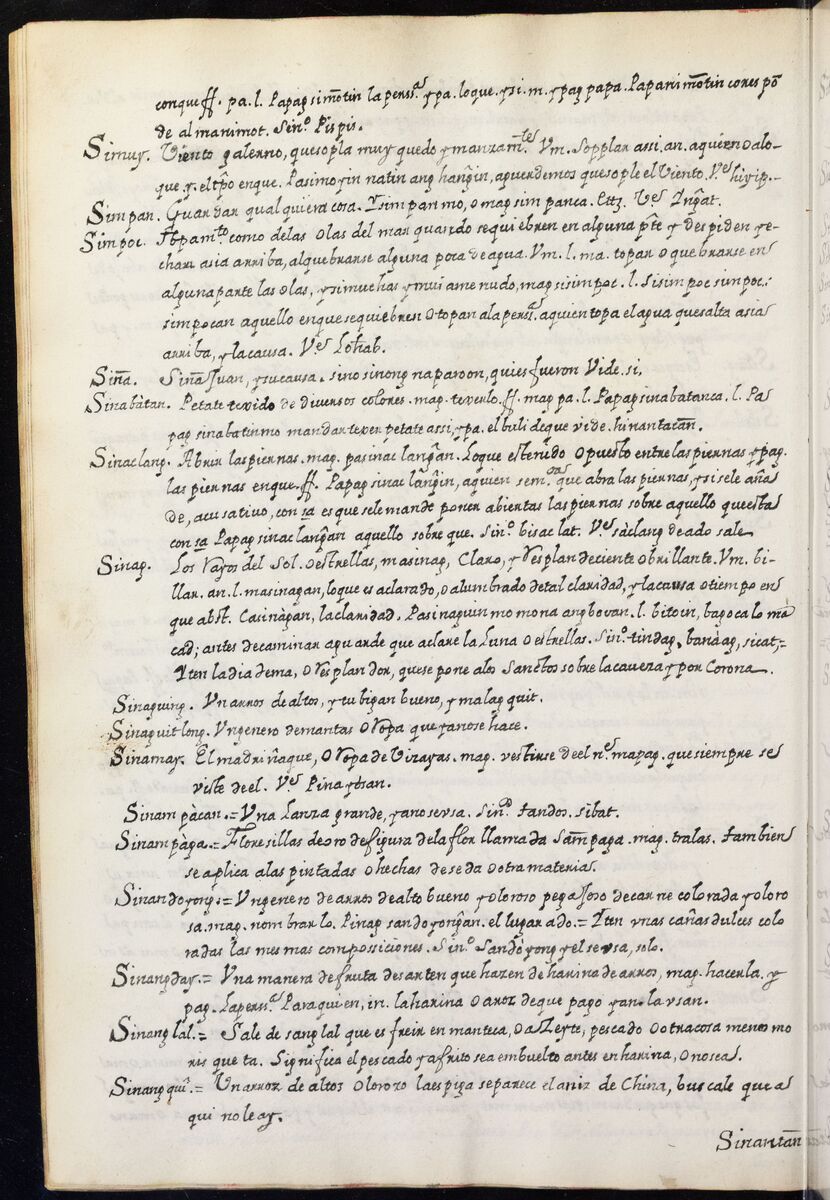 conque ff. pa. l. Papag simōtin la pers.ᵃ y pa. loque. y si. m. y pag papa. Papanimōtin cores pō
de al manimot. Sen.º Pispis.
Simuy. Viento galerno, que sopla muy quedo y manzam.ᵗᵉ Vm. Sopplar assi. an. aquien o alo-
que y. el tp̄o enque. Pasimoyin natin ang hangin, aguardemos que sople el Viento. V.ᵉ hiyip.-
Simpan. Guardar qualquiera cosa. Isimpan mo, o mag simpanca. Ett.ᵃ V.ᵉ Ingat.
Simpoc. Topam.ᵗᵒ como delas olas del mar quando se quiebren en alguna pt̄e y despiden y e-
chan asia arriba, al quebrarse alguna poca de agua. Vm. l. ma. topar o quebrarse en
alguna parte las olas, y si muchas y mui amenudo, mag sisimpoc. l. Sisimpoc simpoc.:
simpocan aquello enque se quiebren o topan ala pers.ᵃ aquien topa el agua que salta asia
arriba, y la causa. V.ᵉ
Siña. Siña Juan, y su causa. sino sinong naparoon, quies fueron Vide. si.
Sinabátan. Petate texido de diversos colores. mag. texerlo. ff. mag pa. l. Papag sinabatanca. l. Pa
pag sinabatin mo mandar texer petate assi, y pa. el buli de que vide. hinantacan.
Sinaclang. Abrir las piernas. mag. pasinac langan. Loque es tenido o puesto entre las piernas y pag.
las piernas enque. ff. Papag sinac langin, aquien sem.ᵒˢ que abra las piernas, y si se le aña
de, acusativo, con sa es que se le mande poner abiertas las piernas sobre aquello que esta
con sa Papag sinac langan aquello sobre que. Sin.º bisac lat. V.ᵉ sàclang de ado sale.
Sinag. Los Rayos del Sol. o estrellas, masinag, Claro, y Resplandeciente o brillante. Vm. bi-
llar. an. l. masinagan, loque es aclarado, o alumbrado de tal claridad, y la causa o tiempo en
que abst. Casinàgan, la claridad. Pasinaguin mo mona ang bovan. l. bitoin, bago ca lo mā
cad; antes de caminar aguarde que aclare la Luna o estrellas. Sin.º tindag, banàag, sicat,=
Iten la diadema, o Resplandor, que se pone alos Sanctos sobre la caveza y por Corona.
Sinaguing. Vn arros de altos, y tubigan bueno, y malagquit.
Sinaguitlong. Vn genero de mantas o Ropa que ya no se hace.
Sinamay. El madriñaque, o Ropa de Vizayas. mag. vestirse de el n.º mapag. que siempre se
viste de el. V.ᵉ Pinaytsan.
Sinampàcan.= Vna Lanza grande, ya no se usa. Sin.º tandos. sibat.
Sinampàga.= Floresillas de oro de figura de la flor llamada Sampaga. mag. tralas. tambien
se aplica alas pintadas o hechas de seda o otra materia.
Sinandoyong.= Vn genero de arros de alto bueno y oloroso pegajoso de carne colorada y oloro
sa. mag. nombrarlo. Pinag sandoyongan. el lugar ado.= Iten vnas cañas dulces colo
radas las mesmas composiciones. Sin.º Sandòyong y el se usa, solo.
Sinangday.= Vna manera de fruta de sarten que hazen de harina de arros, mag. hacerla. y
pag. la pers.ᵃ Para quien, in. la harina o aroz de que pago yan. la usan.
Sinanglal.= Sale de sanglal que es freir en manteca, o aZeyte, pescado o otra cosa menos mo
ris que ta. Significa el pescado ya frito sea embuelto antes en harina, o no sea.
Sinangqui.= Un arroz de altos olorozo la espiga se parece el aniz de China, buscale que a
qui no le ay.
Sinantan